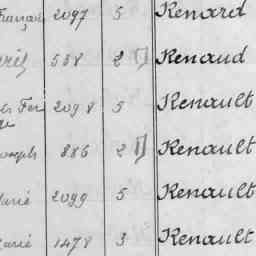 François 2097 5 Renard
538 2 Renaud
2098 5 Renault
Joseph 886 2 Renault
Marie 2099 5 Renault
Marie 1478 3 Renault